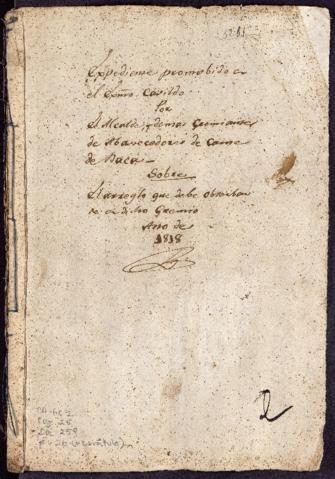 Expediente promobido en
el Exmo. Cavildo
Por
El Alcalde y demas Gremiantes
de Abastecedores de Carne
de Baca
Sobre
El arreglo que debe observar
se en dicho Gremio
Año de
1818
2